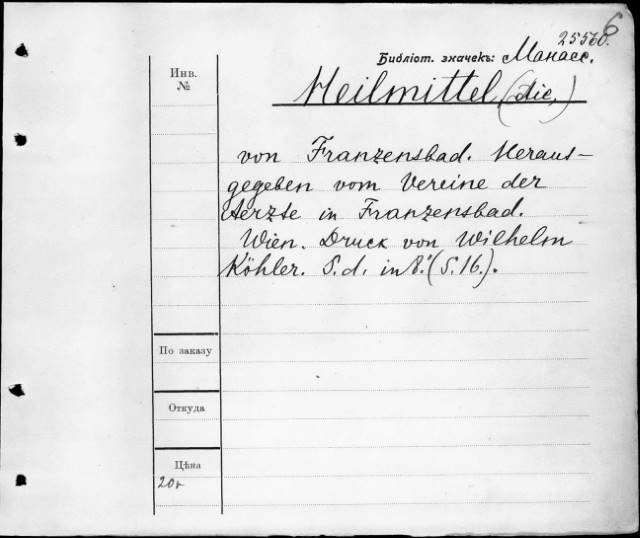 6
25560.
Библіот. значекъ: Манасс.
Инв.
№
Heilmittel, (die,)
von Franzensbad. Heraus-
gegeben vom Vereine der
Aerzte in Franzensbad.
Wien. Druck von Wilhelm
Köhler. S.d. in 8.° (S. 16.).
По заказу
Откуда
Цѣна
20к